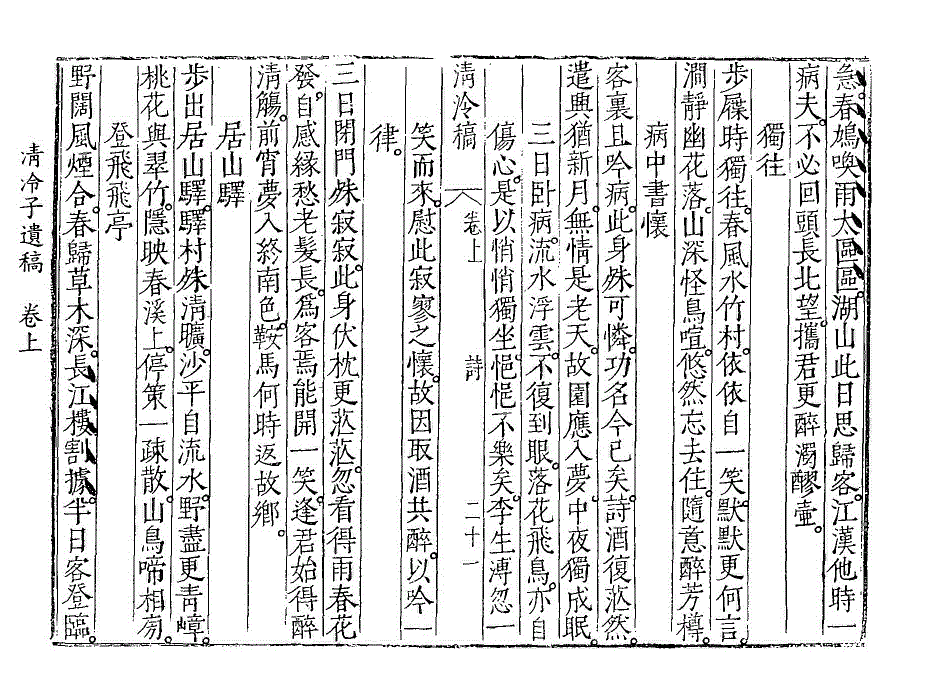 急。春鳩喚雨太區區。湖山此日思歸客。江漢他時一
病夫。不必回頭長北望。攜君更醉濁醪壺。
獨往
步屧時獨往。春風水竹村。依依自一笑。默默更何言。
澗靜幽花落。山深怪鳥喧。悠然忘去住。隨意醉芳樽。
病中書懷
客裏且吟病。此身殊可憐。功名今已矣。詩酒復茫然。
遣興猶新月。無情是老天。故園應入夢。中夜獨成眠。
三日臥病。流水浮雲。不復到眼。落花飛鳥。亦自
傷心。是以悄悄獨坐。悒悒不樂矣。李生溥忽一
清冷稿 卷上 詩 二十一
笑而來。慰此寂寥之懷。故因取酒共醉。以吟一
律。
三日閉門殊寂寂。此身伏枕更茫茫。忽看得雨春花
發。自感緣愁老髮長。爲客焉能開一笑。逢君始得醉
清觴。前宵夢入終南色。鞍馬何時返故鄉。
居山驛
步出居山驛。驛村殊清曠。沙平自流水。野盡更青嶂。
桃花與翠竹。隱映春溪上。停策一疎散。山鳥啼相向。
登飛飛亭
野闊風煙合。春歸草木深。長江樓割據。半日客登臨。
清冷子遺稿 卷上